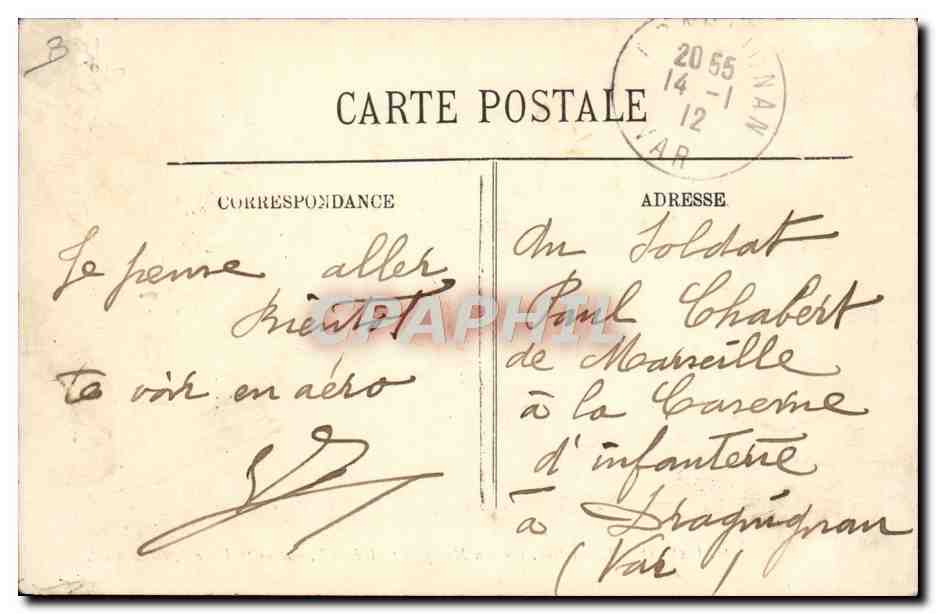 3
20 55
14 -1
12
VAR
CARTE POSTALE
CORRESPONDANCE
Je pense aller
bientot
te voir en aéro
ADRESSE
Au Soldat
Paul Chabert
de Marseille
à la Caserne
d'infanterie
à Draguignan
(Var)
CPAPHIL